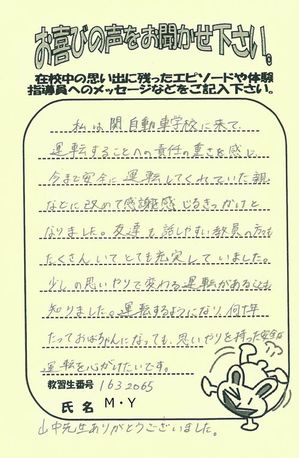 お喜びの声をお聞かせ下さい。
在校中の思い出に残ったエピソードや体験
指導員へのメッセージなどをご記入下さい。
私は関自動車学校に来て、
運転することへの責任の重さを感じ
今まで安全に運転してくれていた親
などに改めて感謝感じるきっかけと
なりました。友達も話しやすい教員の方も
たくさんいてとても充実していました。
少しの思いやりで変わる運転があることも
知りました。運転するようになり、何十年
たっておばちゃんになっても、思いやりを持った安全な
運転を心がけたいです。
教習生番号 1632065
氏名 M・Y
山中先生ありがとうございました。